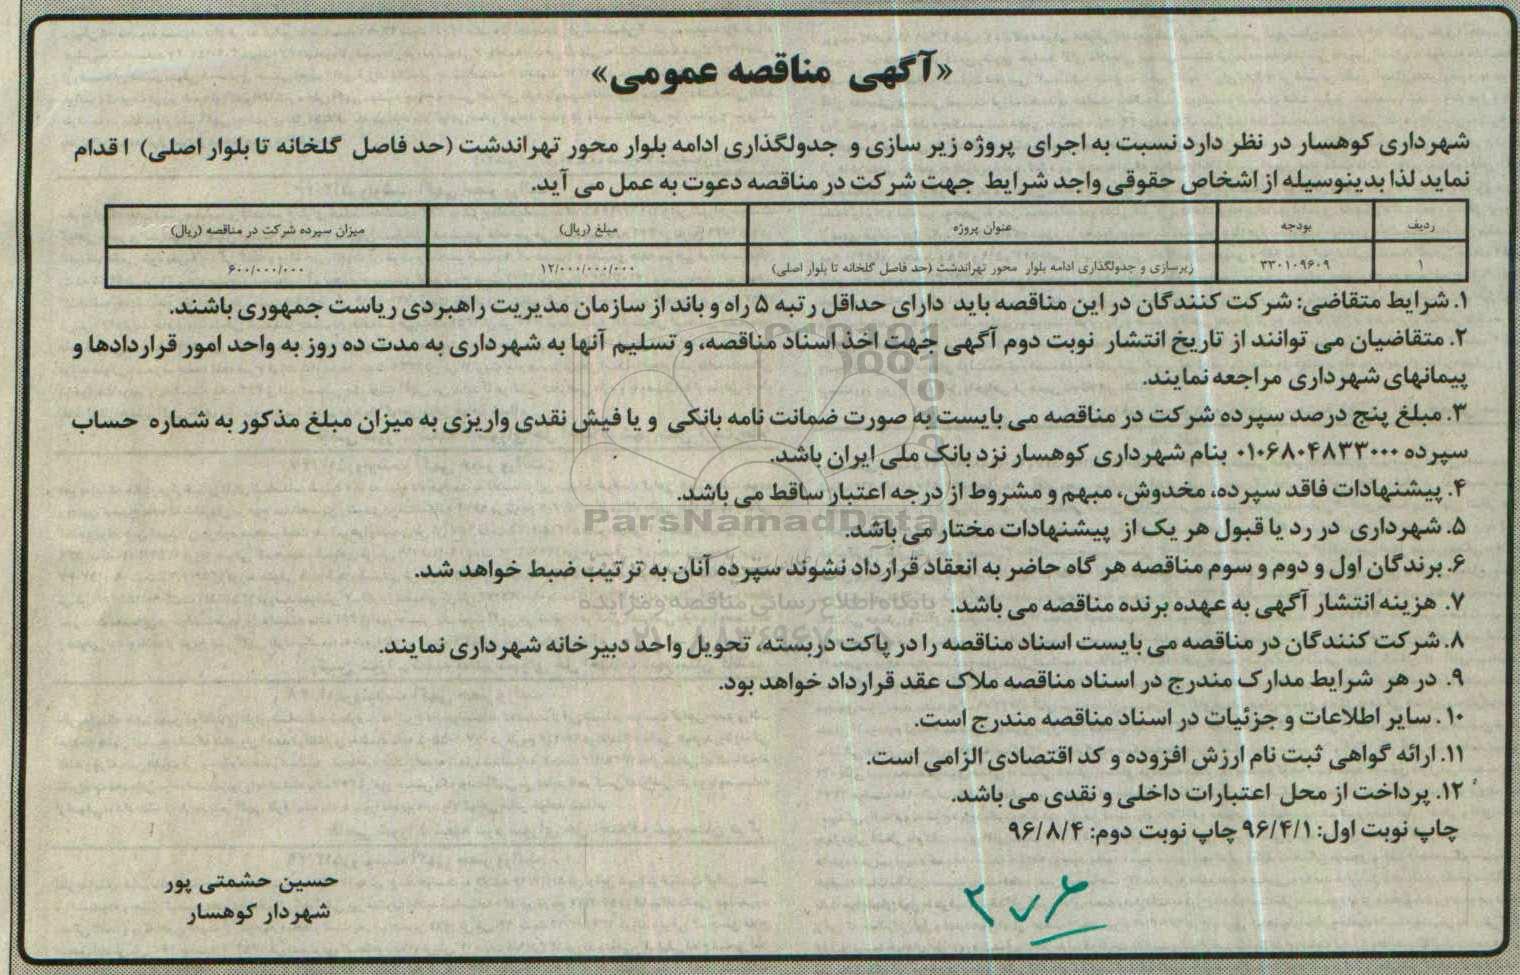 «آگهی مناقصه عمومی»
شهرداری کوهسار در نظر دارد نسبت به اجرای پروژه زیر سازی و جدولگذاری ادامه بلوار محور تهراندشت (حد فاصل گلخانه تا بلوار اصلی) اقدام
نماید لذا بدینوسیله از اشخاص حقوقی واجد شرایط جهت شرکت در مناقصه دعوت به عمل می آید.
ردیف بودجه عنوان پروژه مبلغ (ریال) میزان سپرده شرکت در مناقصه (ریال)
۱ ۳۳۰۱۰۹۶۰۹ زیرسازی و جدولگذاری ادامه بلوار محور تهراندشت (حد فاصل گلخانه تا بلوار اصلی) ۱۲/۰۰۰/۰۰۰/۰۰۰ ۶۰۰/۰۰۰/۰۰۰
۱. شرایط متقاضی: شرکت کنندگان در این مناقصه باید دارای حداقل رتبه ۵ راه و باند از سازمان مدیریت راهبردی ریاست جمهوری باشند.
۲. متقاضیان می توانند از تاریخ انتشار نوبت دوم آگهی جهت اخذ اسناد مناقصه، و تسلیم آنها به شهرداری به مدت ده روز به واحد امور قراردادها و
پیمانهای شهرداری مراجعه نمایند.
۳. مبلغ پنج درصد سپرده شرکت در مناقصه می بایست به صورت ضمانت نامه بانکی و یا فیش نقدی واریزی به میزان مبلغ مذکور به شماره حساب
سپرده ۰۱۰۶۸۰۴۸۳۳۰۰۰ بنام شهرداری کوهسار نزد بانک ملی ایران باشد.
۴. پیشنهادات فاقد سپرده، مخدوش، مبهم و مشروط از درجه اعتبار ساقط می باشد.
ParsNamadData
۵. شهرداری در رد یا قبول هر یک از پیشنهادات مختار می باشد.
۶. برندگان اول و دوم و سوم مناقصه هر گاه حاضر به انعقاد قرارداد نشوند سپرده آنان به ترتیب ضبط خواهد شد.
پایگاه اطلاع رسانی مناقصه و مزایده
۷. هزینه انتشار آگهی به عهده برنده مناقصه می باشد.
۸. شرکت کنندگان در مناقصه می بایست اسناد مناقصه را در پاکت دربسته، تحویل واحد دبیرخانه شهرداری نمایند.
۹. در هر شرایط مدارک مندرج در اسناد مناقصه ملاک عقد قرارداد خواهد بود.
۱۰. سایر اطلاعات و جزئیات در اسناد مناقصه مندرج است.
۱۱. ارائه گواهی ثبت نام ارزش افزوده و کد اقتصادی الزامی است.
۱۲. پرداخت از محل اعتبارات داخلی و نقدی می باشد.
چاپ نوبت اول: ۹۶/۴/۱ چاپ نوبت دوم: ۹۶/۸/۴
حسین حشمتی پور
شهردار کوهسار
۲۷۶